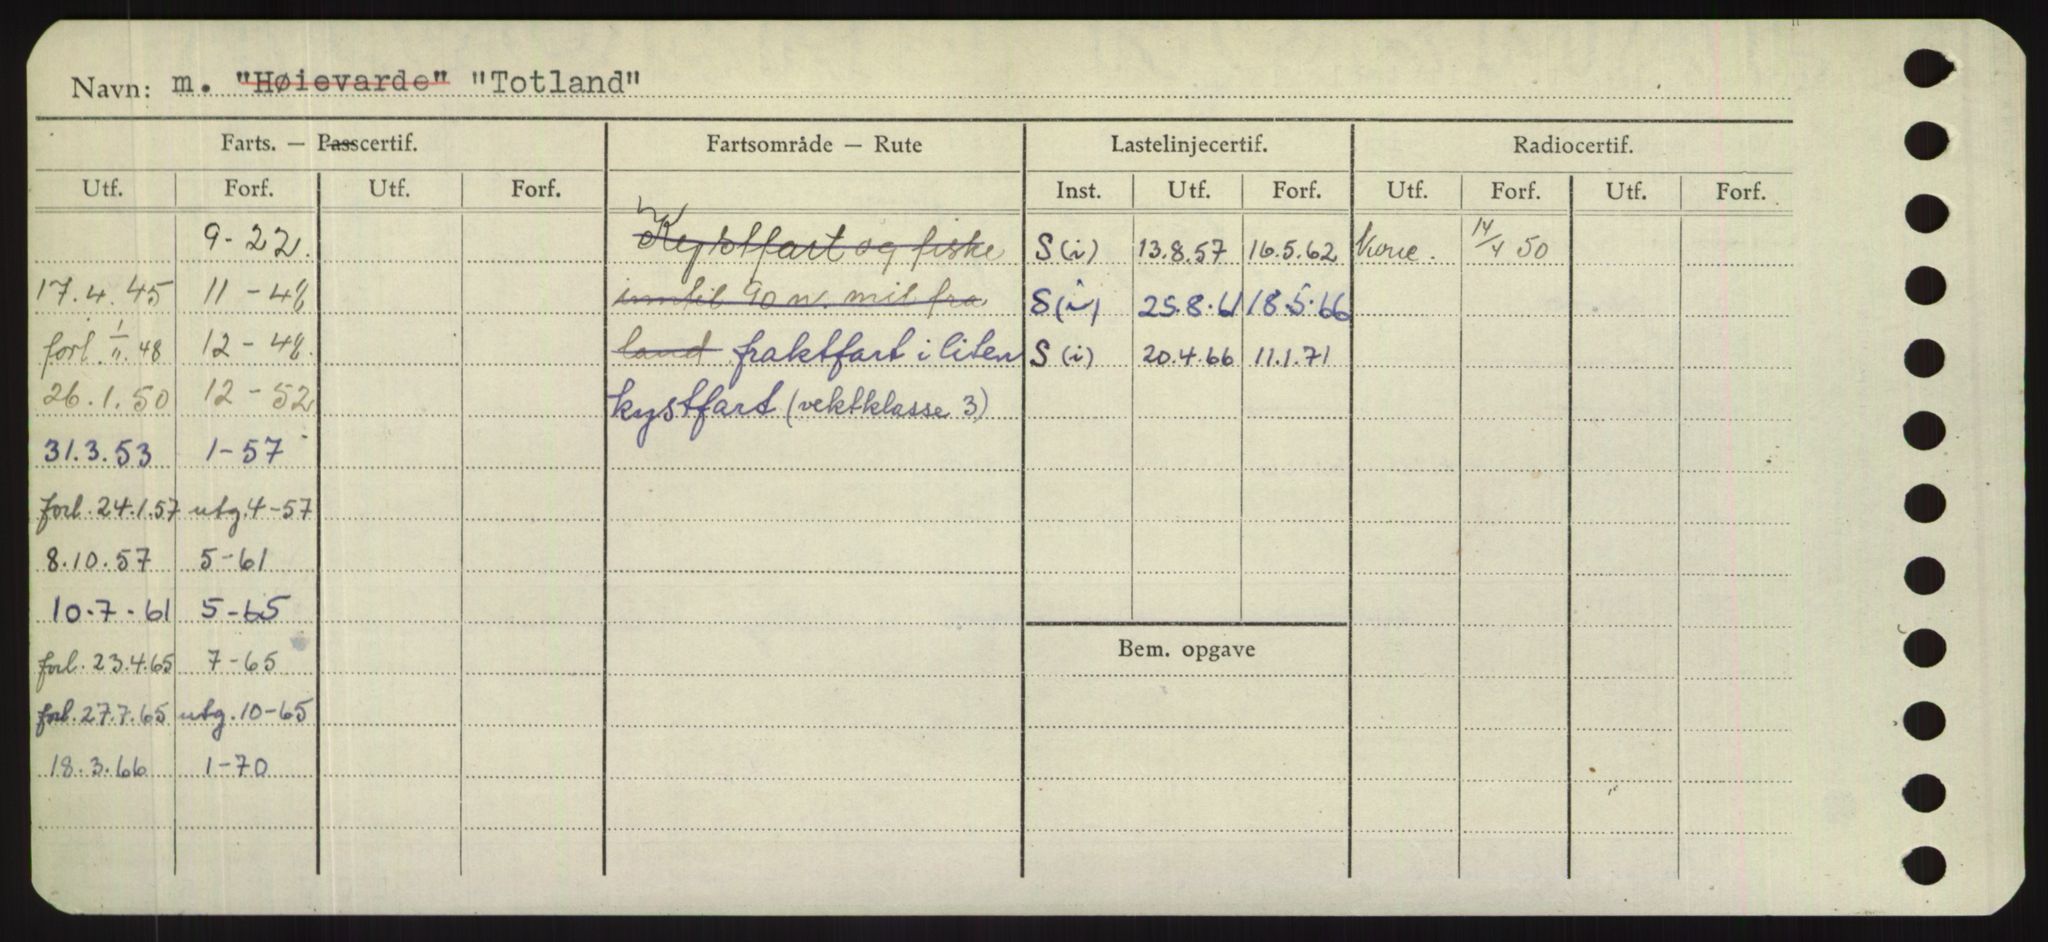 Navn: m. "Høievarde" "Totland"
Farts. — Passcertif. Fartsområde — Rute Lastelinjecertif. Radiocertif.
Utf. Forf. Utf. Forf. Inst. Utf. Forf. Utf. Forf. Utf. Forf.
9-22. Kystfart og fiske S(i) 13.8.57 16.5.62 14/4 50
17.4.45 11-48 inntil 90 n. mil fra S(i) 25.8.61 18.5.66
forl. 1/11.48 12-48. land fraktfart i liten S(i) 20.4.66 11.1.71
26.1.50 12-52 kystfart (vektklasse 3)
31.3.53 1-57
forl. 24.1.57 utg. 4-57
8.10.57 5-61
10.7.61 5-65
Bem. opgave
forl. 23.4.65 7-65
forl. 27.7.65 utg. 10-65
18.3.66 1-70